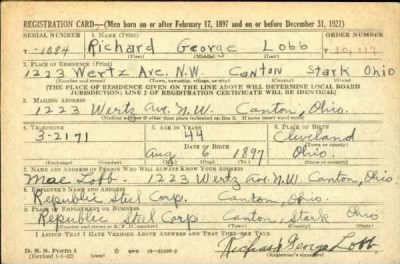 REGISTRATION CARD—(Men born on or after February 17, 1897 and on or before December 31, 1921)
SERIAL NUMBER 1. NAME (Print) ORDER NUMBER
T-1084 Richard George Lobb
(First) (Middle) (Last)
2. PLACE OF RESIDENCE (Print)
1223 Wertz Ave. N.W. Canton Stark Ohio
(Number and street) (Town, township, village, or city) (County) (State)
[THE PLACE OF RESIDENCE GIVEN ON THE LINE ABOVE WILL DETERMINE LOCAL BOARD
JURISDICTION; LINE 2 OF REGISTRATION CERTIFICATE WILL BE IDENTICAL]
3. MAILING ADDRESS
1223 Wertz Ave. N.W. Canton, Ohio.
[Mailing address if other than place indicated on line 2. If same insert word same]
4. TELEPHONE 5. AGE IN YEARS 6. PLACE OF BIRTH
3-2171 44 Cleveland
DATE OF BIRTH
Aug 6 1897 Ohio.
(Exchange) (Number) (Mo.) (Day) (Yr.) (State or country)
7. NAME AND ADDRESS OF PERSON WHO WILL ALWAYS KNOW YOUR ADDRESS
Mae Lobb - 1223 Wertz Ave. N.W. Canton, Ohio
8. EMPLOYER'S NAME AND ADDRESS
Republic Steel Corp. Canton, Ohio.
9. PLACE OF EMPLOYMENT OR BUSINESS
Republic Steel Corp. Canton, Stark Ohio
(Number and street or R. F. D. number) (Town) (County) (State)
I AFFIRM THAT I HAVE VERIFIED ABOVE ANSWERS AND THAT THEY ARE TRUE.
D. S. S. Form 1
(Revised 1-1-42) Richard George Lobb
(Registrant's signature)